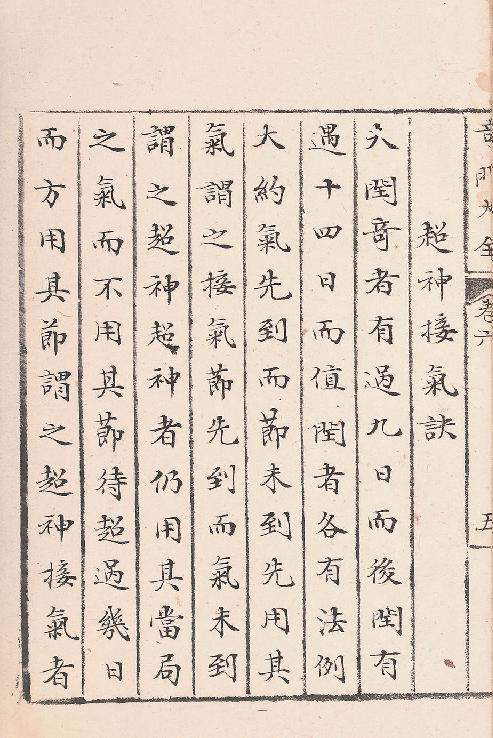 奇門大全 卷六 五
超神接氣訣
夫閏奇者有過九日而後閏有
遇十四日而值閏者各有法例
大約氣先到而節未到先用其
氣謂之接氣節先到而氣未到
謂之超神超神者仍用其當局
之氣而不用其節待超過幾日
而方用其節謂之超神接氣者